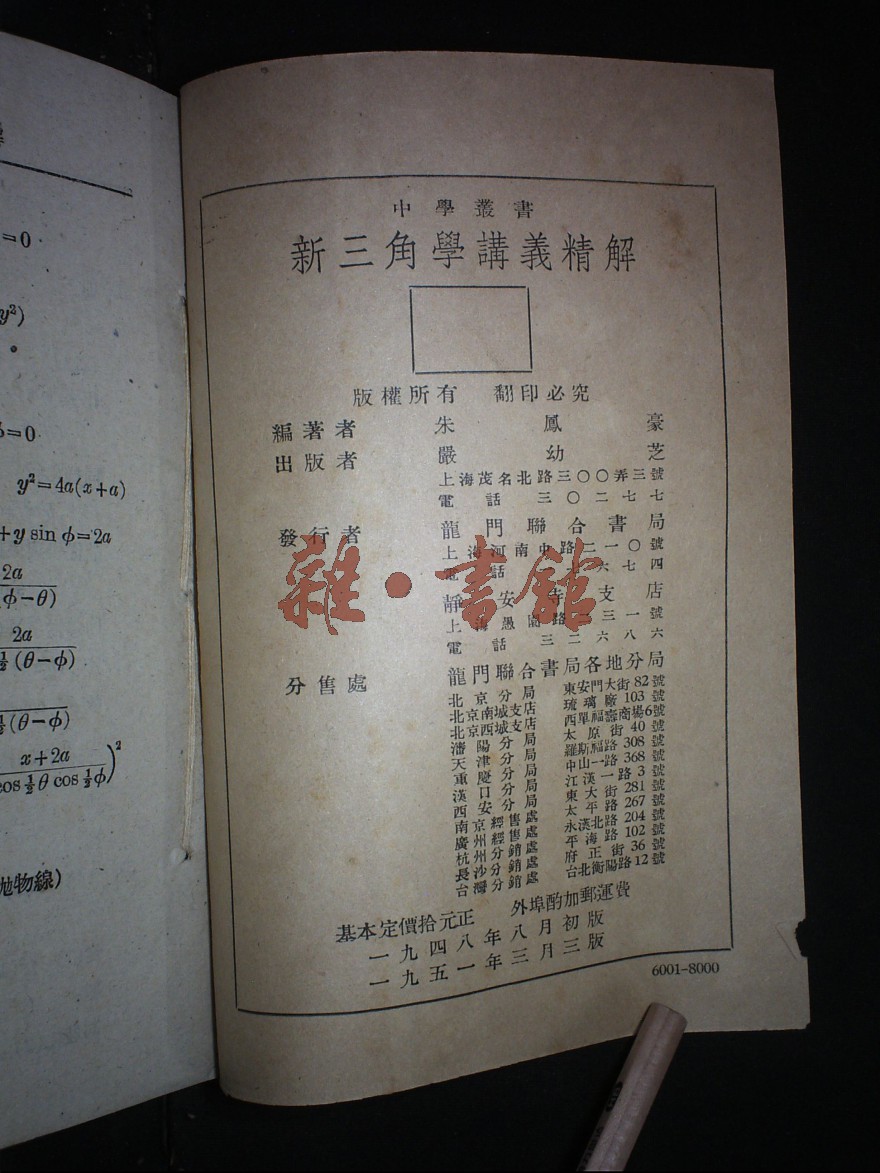 =0
y²)
=0
y²=4a(x+a)
+y sin ϕ=2a
2a
(ϕ−θ)
2a
½(θ−ϕ)
½(θ−ϕ)
x+2a
cos ½θ cos ½ϕ)²
拋物線)
中學叢書
新三角學講義精解
版權所有 翻印必究
編著者 朱鳳豪
出版者 嚴幼芝
上海茂名北路三〇〇弄三號
電話 三〇二七七
發行者 龍門聯合書局
上海河南中路二一〇號
電話 六七四
靜安寺支店
上海愚園路一三一號
電話 三二六八六
雜·書館
分售處 龍門聯合書局各地分局
北京分局 東安門大街82號
北京南城支店 琉璃廠103號
北京西城支店 西單福壽商場6號
瀋陽分局 太原街40號
天津分局 羅斯福路308號
重慶分局 中山一路368號
漢口分局 江漢一路3號
西安分局 東大街281號
南京經售處 太平路267號
廣州經售處 永漢北路204號
杭州分銷處 平海路102號
長沙分銷處 府正街36號
台灣分銷處 台北衡陽路12號
基本定價拾元正 外埠酌加郵運費
一九四八年八月初版
一九五一年三月三版
6001-8000